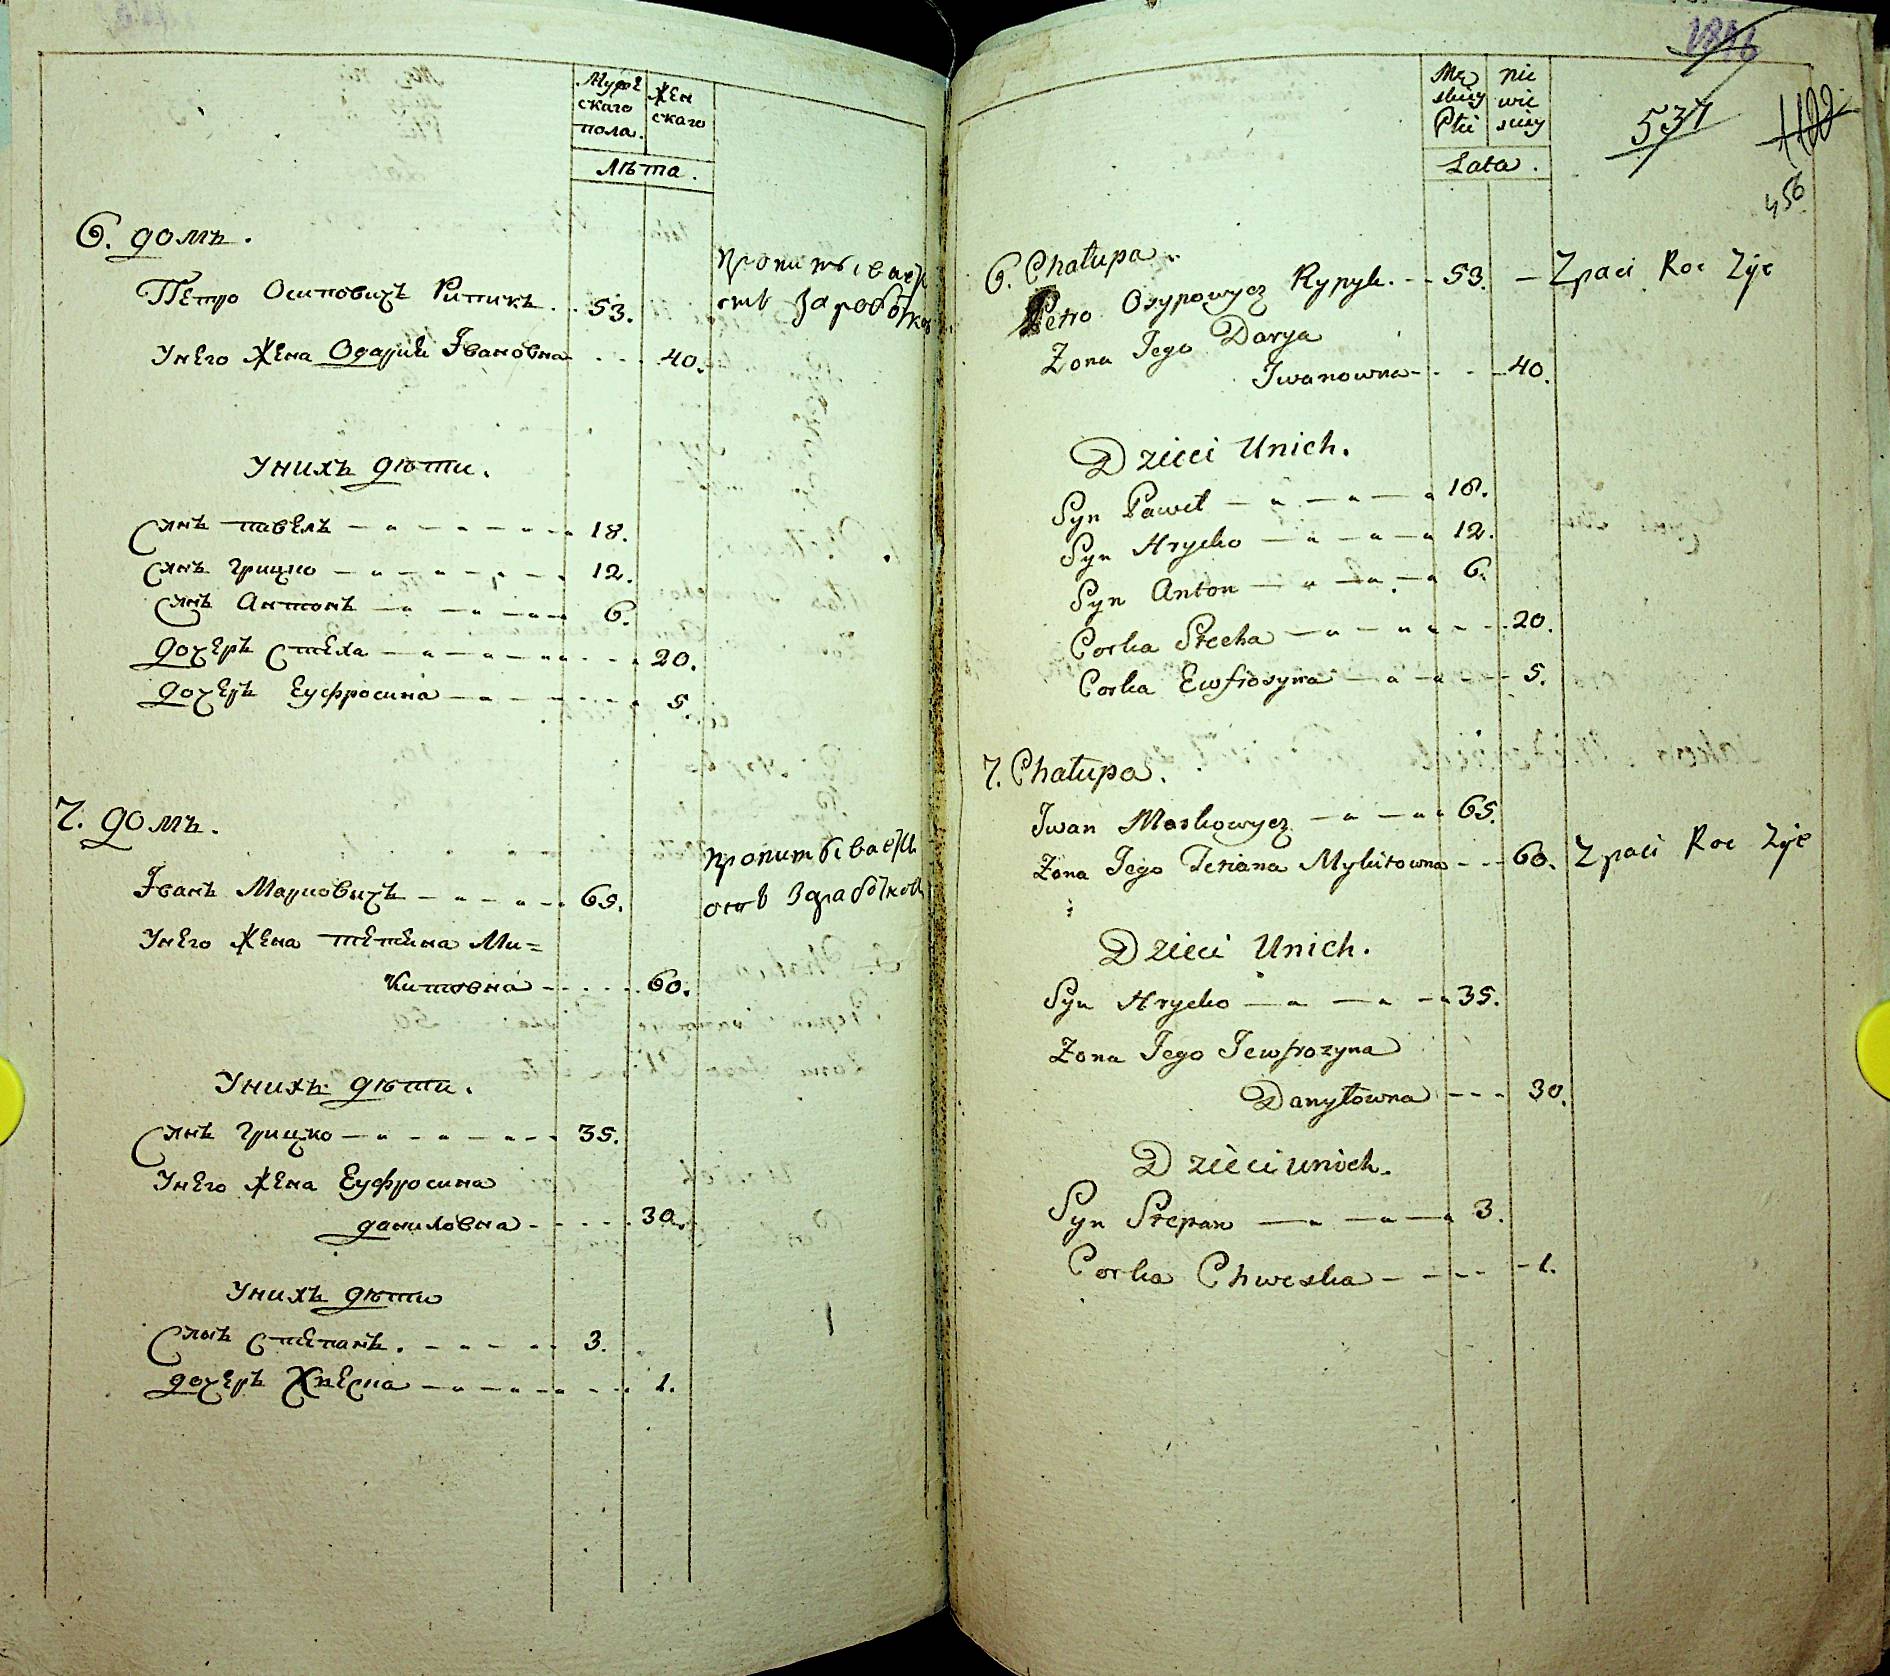 Мужескаго пола.
Женскаго
Лѣта.
6. домъ.
Петро Осиповичъ Рипикъ 53.
пропитывается
отъ заработков
Унего Жена Одария Ивановна 40.
Унихъ дѣти.
Сынъ павелъ 18.
Сынъ Грицко 12.
Сынъ Антонъ 6.
дочеръ Стеха 20.
дочеръ Еуфросина 5.
7. домъ.
Иванъ Марковичъ 65.
пропитывается
отъ заработков
Унего Жена тетяна Ми=
китовна 60.
Унихъ дѣти.
Сынъ Грицко 35.
Унего Жена Еуфросина
даниловна 30.
Унихъ дѣти
Сынъ Степанъ. 3.
дочеръ Хвеска 1.
537
456
Męskiey Płci
niewieściey
Lata.
6. Chałupa.
Petro Osypowycz Rypyk. 53. Z praci Rok Żyie
Zona Jego Darya
Iwanowna 40.
Dzieci Unich.
Syn Paweł 18.
Syn Hrycko 12.
Syn Anton 6.
Corka Stecha 20.
Corka Ewfrosyna 5.
7. Chałupa.
Iwan Markowycz 65.
Zona Jego Tetiana Mykitowna 60. Z praci Rok Żyie
Dzieci Unich.
Syn Hrycko 35.
Zona Jego Jewfrozyna
Danyłowna 30.
Dzieci unich.
Syn Stepan 3.
Corka Chweska 1.